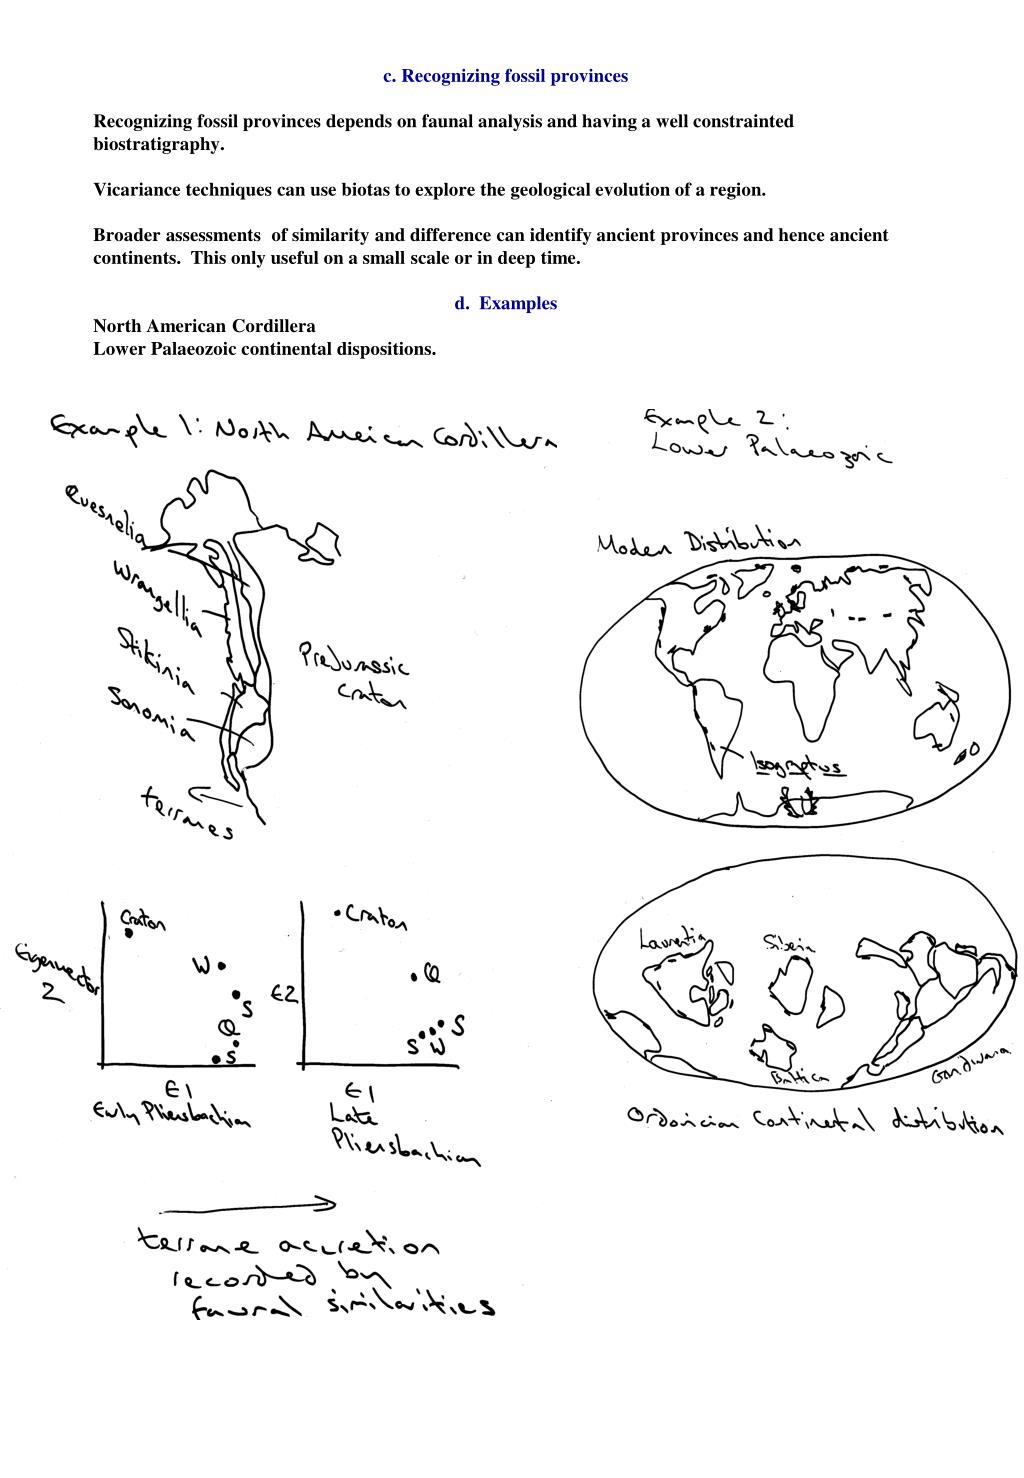 c. Recognizing fossil provinces
Recognizing fossil provinces depends on faunal analysis and having a well constrainted
biostratigraphy.
Vicariance techniques can use biotas to explore the geological evolution of a region.
Broader assessments  of similarity and difference can identify ancient provinces and hence ancient
continents.  This only useful on a small scale or in deep time.
d.  Examples
North American Cordillera
Lower Palaeozoic continental dispositions.
Example 1: North American Cordillera
Quesnelia
Wrangellia
Stikinia
Sonomia
terranes
PreJurassic
craton
Example 2:
Lower Palaeozoic
Modern Distribution
Isograptus
Craton
W
S
Q
S
Eigenvector
2
E1
Early Pliensbachian
Craton
Q
E2
S
S W
E1
Late
Pliensbachian
terrane accretion
recorded by
faunal similarities
Laurentia
Siberia
Baltica
Gondwana
Ordovician Continetal distribution